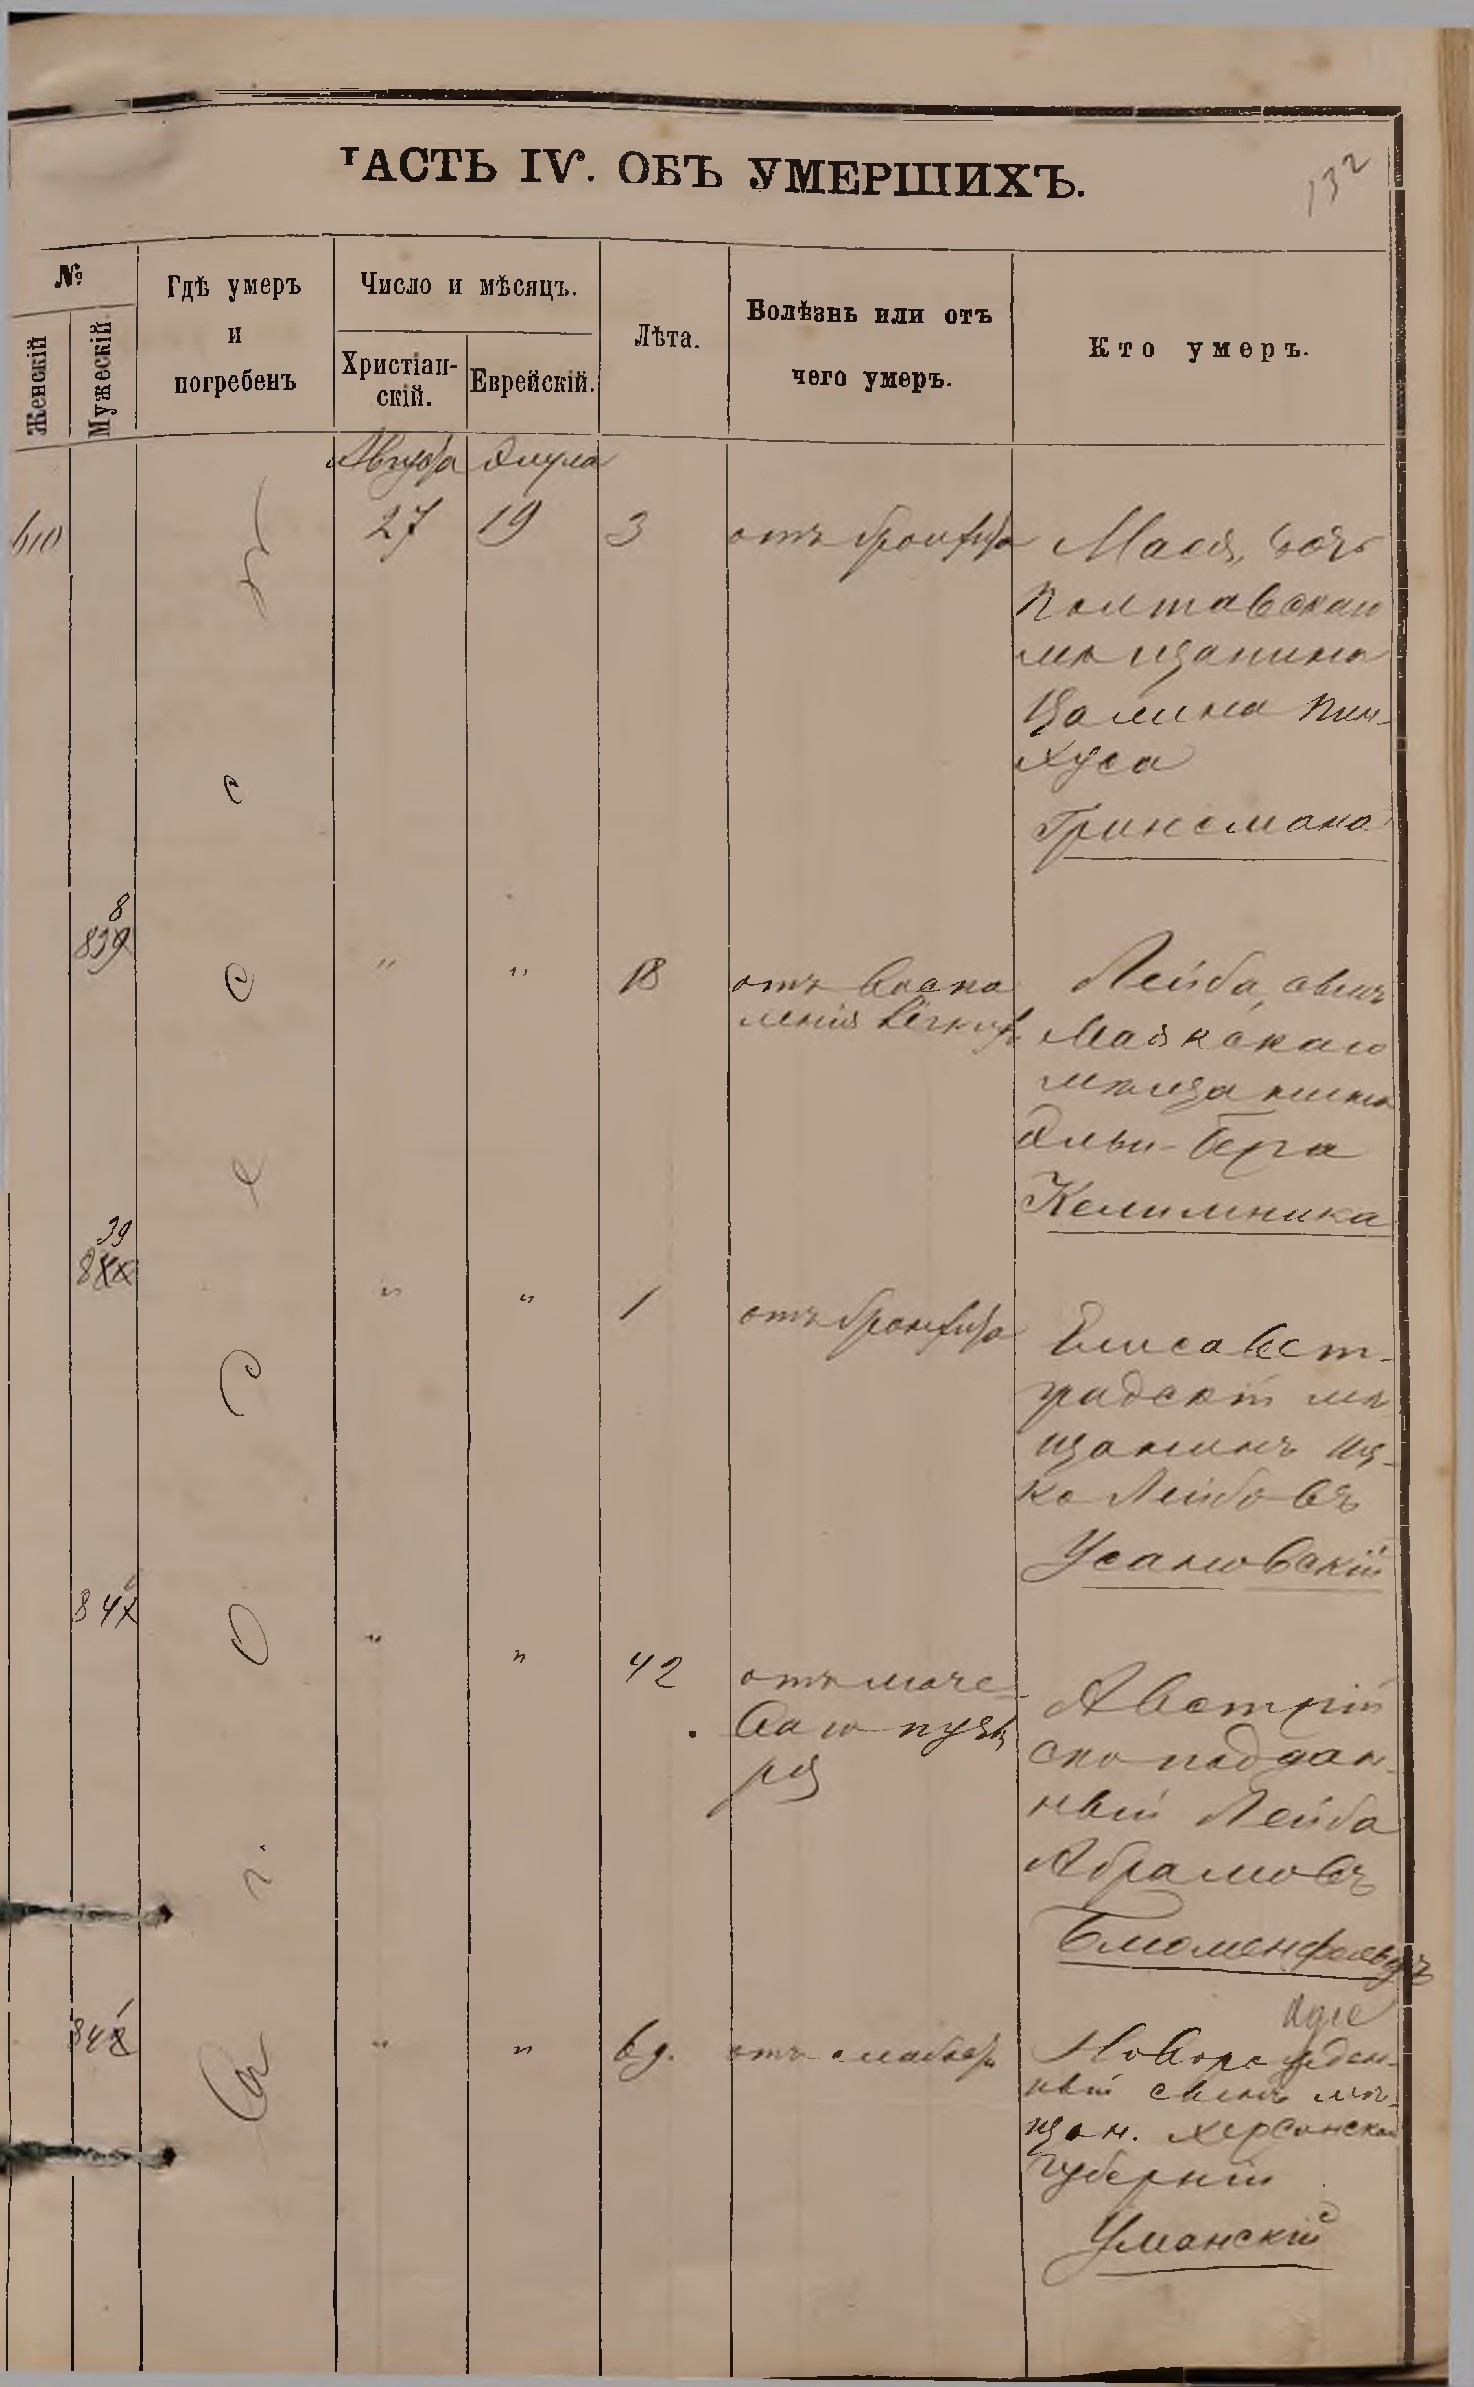 ЧАСТЬ IV. ОБЪ УМЕРШИХЪ.
132
№
Женскій
Мужескій.
Гдѣ умеръ
и
погребенъ
Число и мѣсяцъ.
Христіан-
скій.
Еврейскій.
Лѣта.
Болѣзнь или отъ
чего умеръ.
Кто умеръ.
Августа Элула
610
27 19 3 отъ бронхита
Мася, дочь
Полтавскаго
мѣщанина
Цалина Пин-
хуса
Гринсмана
8
839
" " 18 отъ воспа
ленія легкихъ
Лейба, сынъ
Маякскаго
мѣщанина
Эльи-Бера
Келимника
39
" " 1 отъ бронхита
Елисавет-
градскій мѣ
щанинъ Иц-
ко Лейбовъ
Усатовскій
84
" " 42 отъ моче-
ваго пузы
ря
Австрій
ско поддан-
ный Лейба
Абрамовъ
Блюменфельдъ
84
" " 6 д. отъ слабости
Новорожден-
ный сынъ мѣ-
щан. Херсонской
губерніи
Уманскій